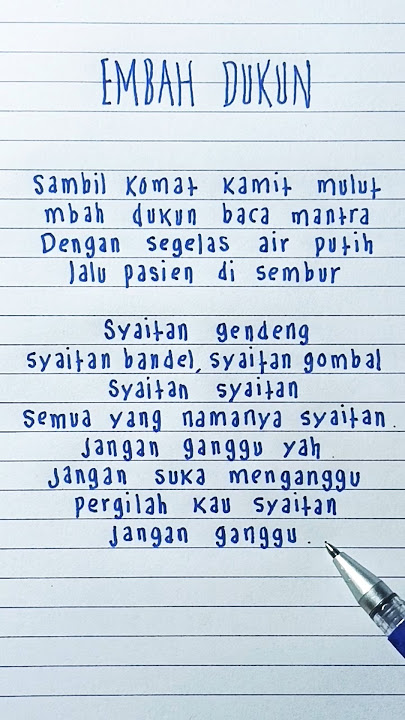 EMBAH DUKUN
Sambil komat kamit mulut
mbah dukun baca mantra
Dengan segelas air putih
lalu pasien di sembur
Syaitan gendeng
syaitan bandel, syaitan gombal
Syaitan syaitan
semua yang namanya syaitan.
jangan ganggu yah
jangan suka mengganggu
pergilah kau syaitan
jangan ganggu.